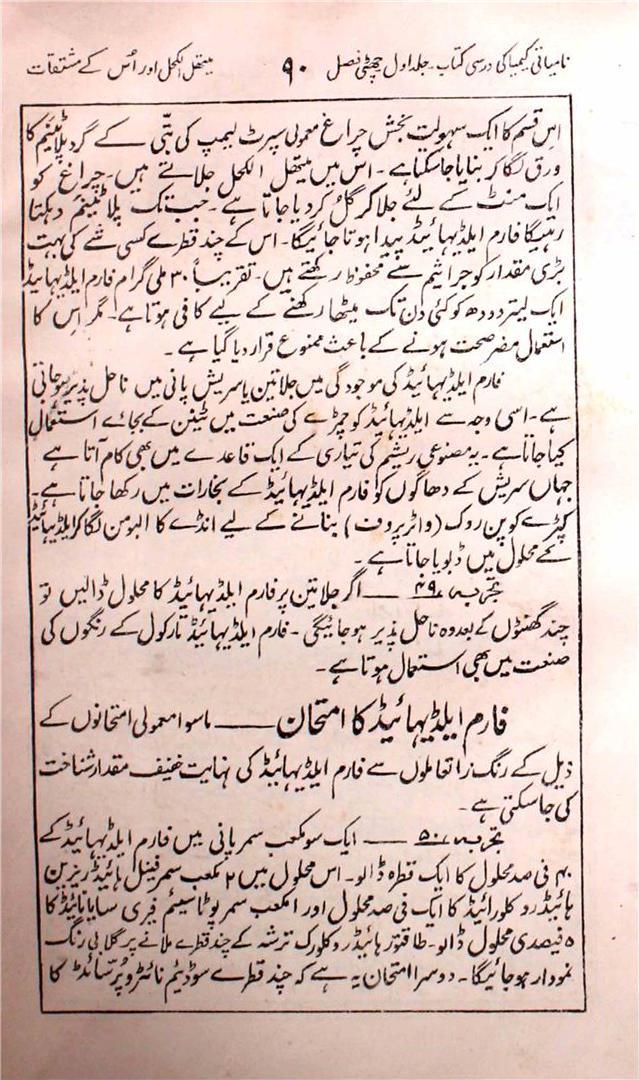 نامیاتی کیمیا کی درسی کتاب۔ جلد اول چھٹی فصل ۹۰ میتھل الکحل اور اُس کے مشتقات
اِس قسم کا ایک سہولت بخش چراغ معمولی سپرٹ لیمپ کی بتّی کے گرد پلاٹینم کا
ورق لگا کر بنایا جاسکتا ہے۔ اس میں میتھل الکحل جلاتے ہیں۔ چراغ کو
ایک منٹ کے لئے جلا کر گُل کر دیا جاتا ہے۔ جب تک پلاٹینم دہکتا
رہیگا فارم ایلڈیہائیڈ پیدا ہوتا جائیگا۔ اس کے چند قطرے کسی شے کی بہت
بڑی مقدار کو جراثیم سے محفوظ رکھتے ہیں۔ تقریباً ۳۰ ملی گرام فارم ایلڈیہائیڈ
ایک لیتر دودھ کو کئی دن تک میٹھا رکھنے کے لیے کافی ہوتا ہے۔ مگر اِس کا
استعمال مضر صحت ہونے کے باعث ممنوع قرار دیا گیا ہے۔
فارم ایلڈیہائیڈ کی موجودگی میں جلاتین یا سریش پانی میں ناحل پذیر ہوجاتی
ہے۔ اسی وجہ سے ایلڈیہائیڈ کو چمڑے کی صنعت میں ٹینن کے بجائے استعمال
کیا جاتا ہے۔ یہ مصنوعی ریشم کی تیاری کے ایک قاعدے میں بھی کام آتا ہے
جہاں سریش کے دھاگوں کو فارم ایلڈیہائیڈ کے بخارات میں رکھا جاتا ہے۔
کپڑے کو پن روک (واٹر پروف) بنانے کے لیے انڈے کا البومن لگا کر ایلڈیہائیڈ
کے محلول میں ڈبویا جاتا ہے۔
تجربہ ۴۹ — اگر جلاتین پر فارم ایلڈیہائیڈ کا محلول ڈالیں تو
چند گھنٹوں کے بعد وہ ناحل پذیر ہوجائیگی۔ فارم ایلڈیہائیڈ تارکول کے رنگوں کی
صنعت میں بھی استعمال ہوتا ہے۔
فارم ایلڈیہائیڈ کا امتحان — ماسوا معمولی امتحانوں کے
ذیل کے رنگ زا تعاملوں سے فارم ایلڈیہائیڈ کی نہایت خفیف مقدار شناخت
کی جاسکتی ہے۔
تجربہ ۵۰ — ایک سو مکعب سمر پانی میں فارم ایلڈیہائیڈ کے
۴۰ فی صد محلول کا ایک قطرہ ڈالو۔ اس محلول میں ۲ مکعب سمر فینل ہائیڈریزین
ہائیڈروکلورائیڈ کا ایک فی صد محلول اور ۱ مکعب سمر پوٹاسیئم فیری سایانائیڈ کا
۵ فیصدی محلول ڈالو۔ طاقتور ہائیڈروکلورک ترشہ کے چند قطرے ملانے پر گلابی رنگ
نمودار ہوجائیگا۔ دوسرا امتحان یہ ہے کہ چند قطرے سوڈیئم نائٹروپُرسائڈ کا